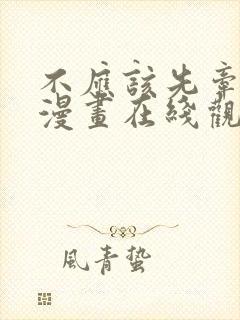 不應該先牽
漫畫在綫觀
風青蟄